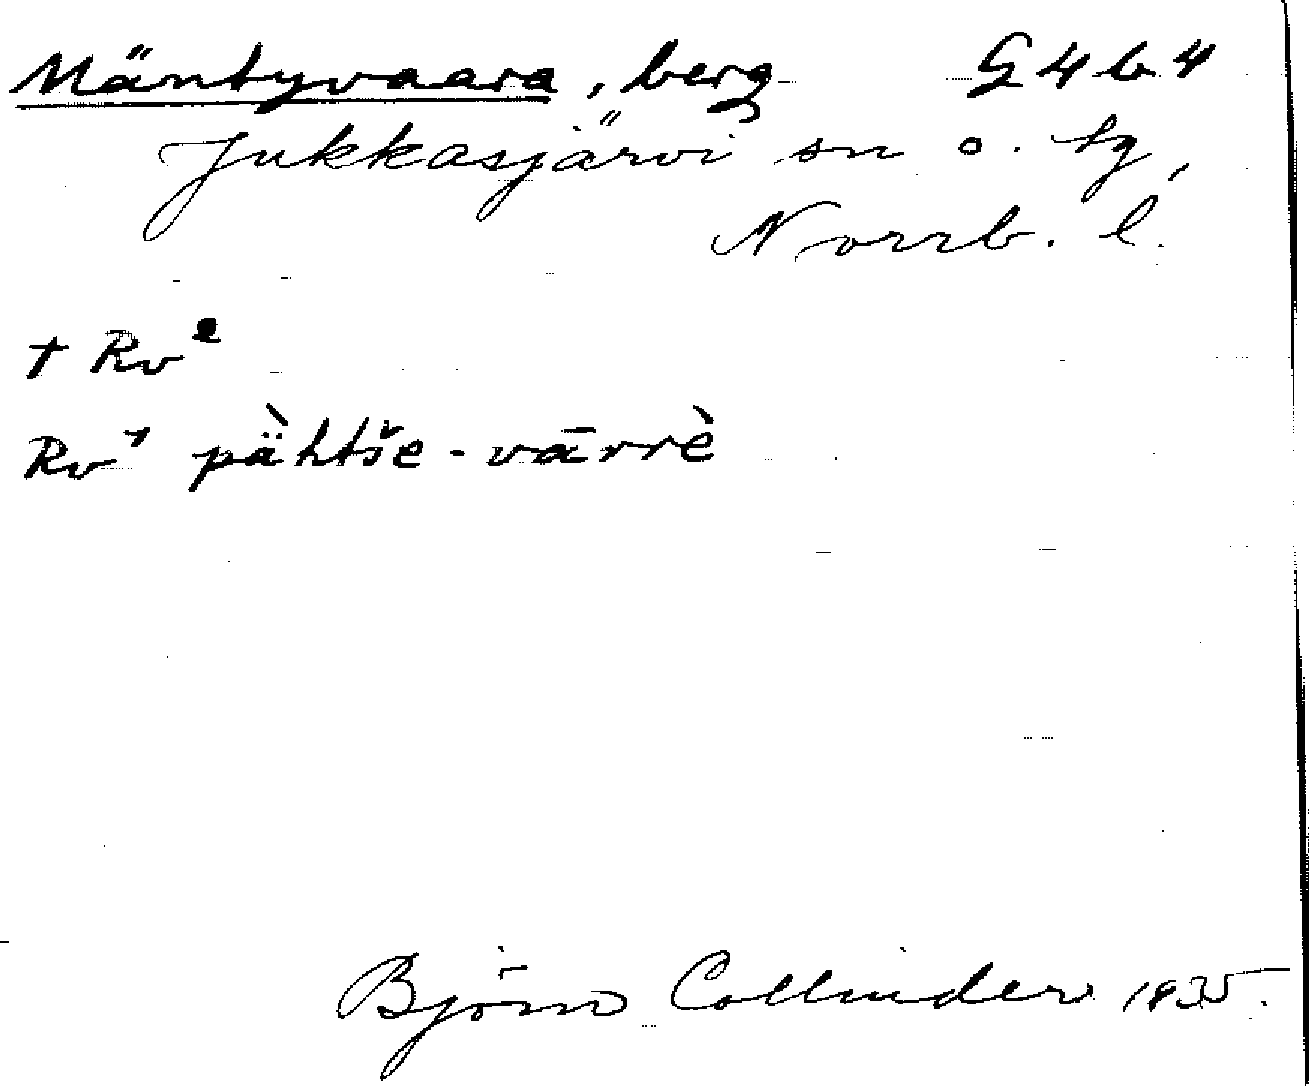 Mäntyvaara, berg G4b4
Jukkasjärvi sn o. tg,
Norrb. l.
+ Rv²
Rv⁺ pä̀htše-vārrè
Björn Collinder 1935.